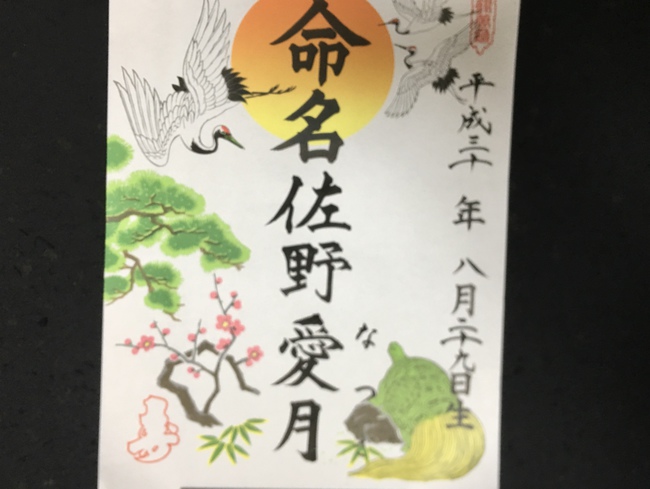 平成三十年 八月二十九日生
なつ
命名 佐野 愛月